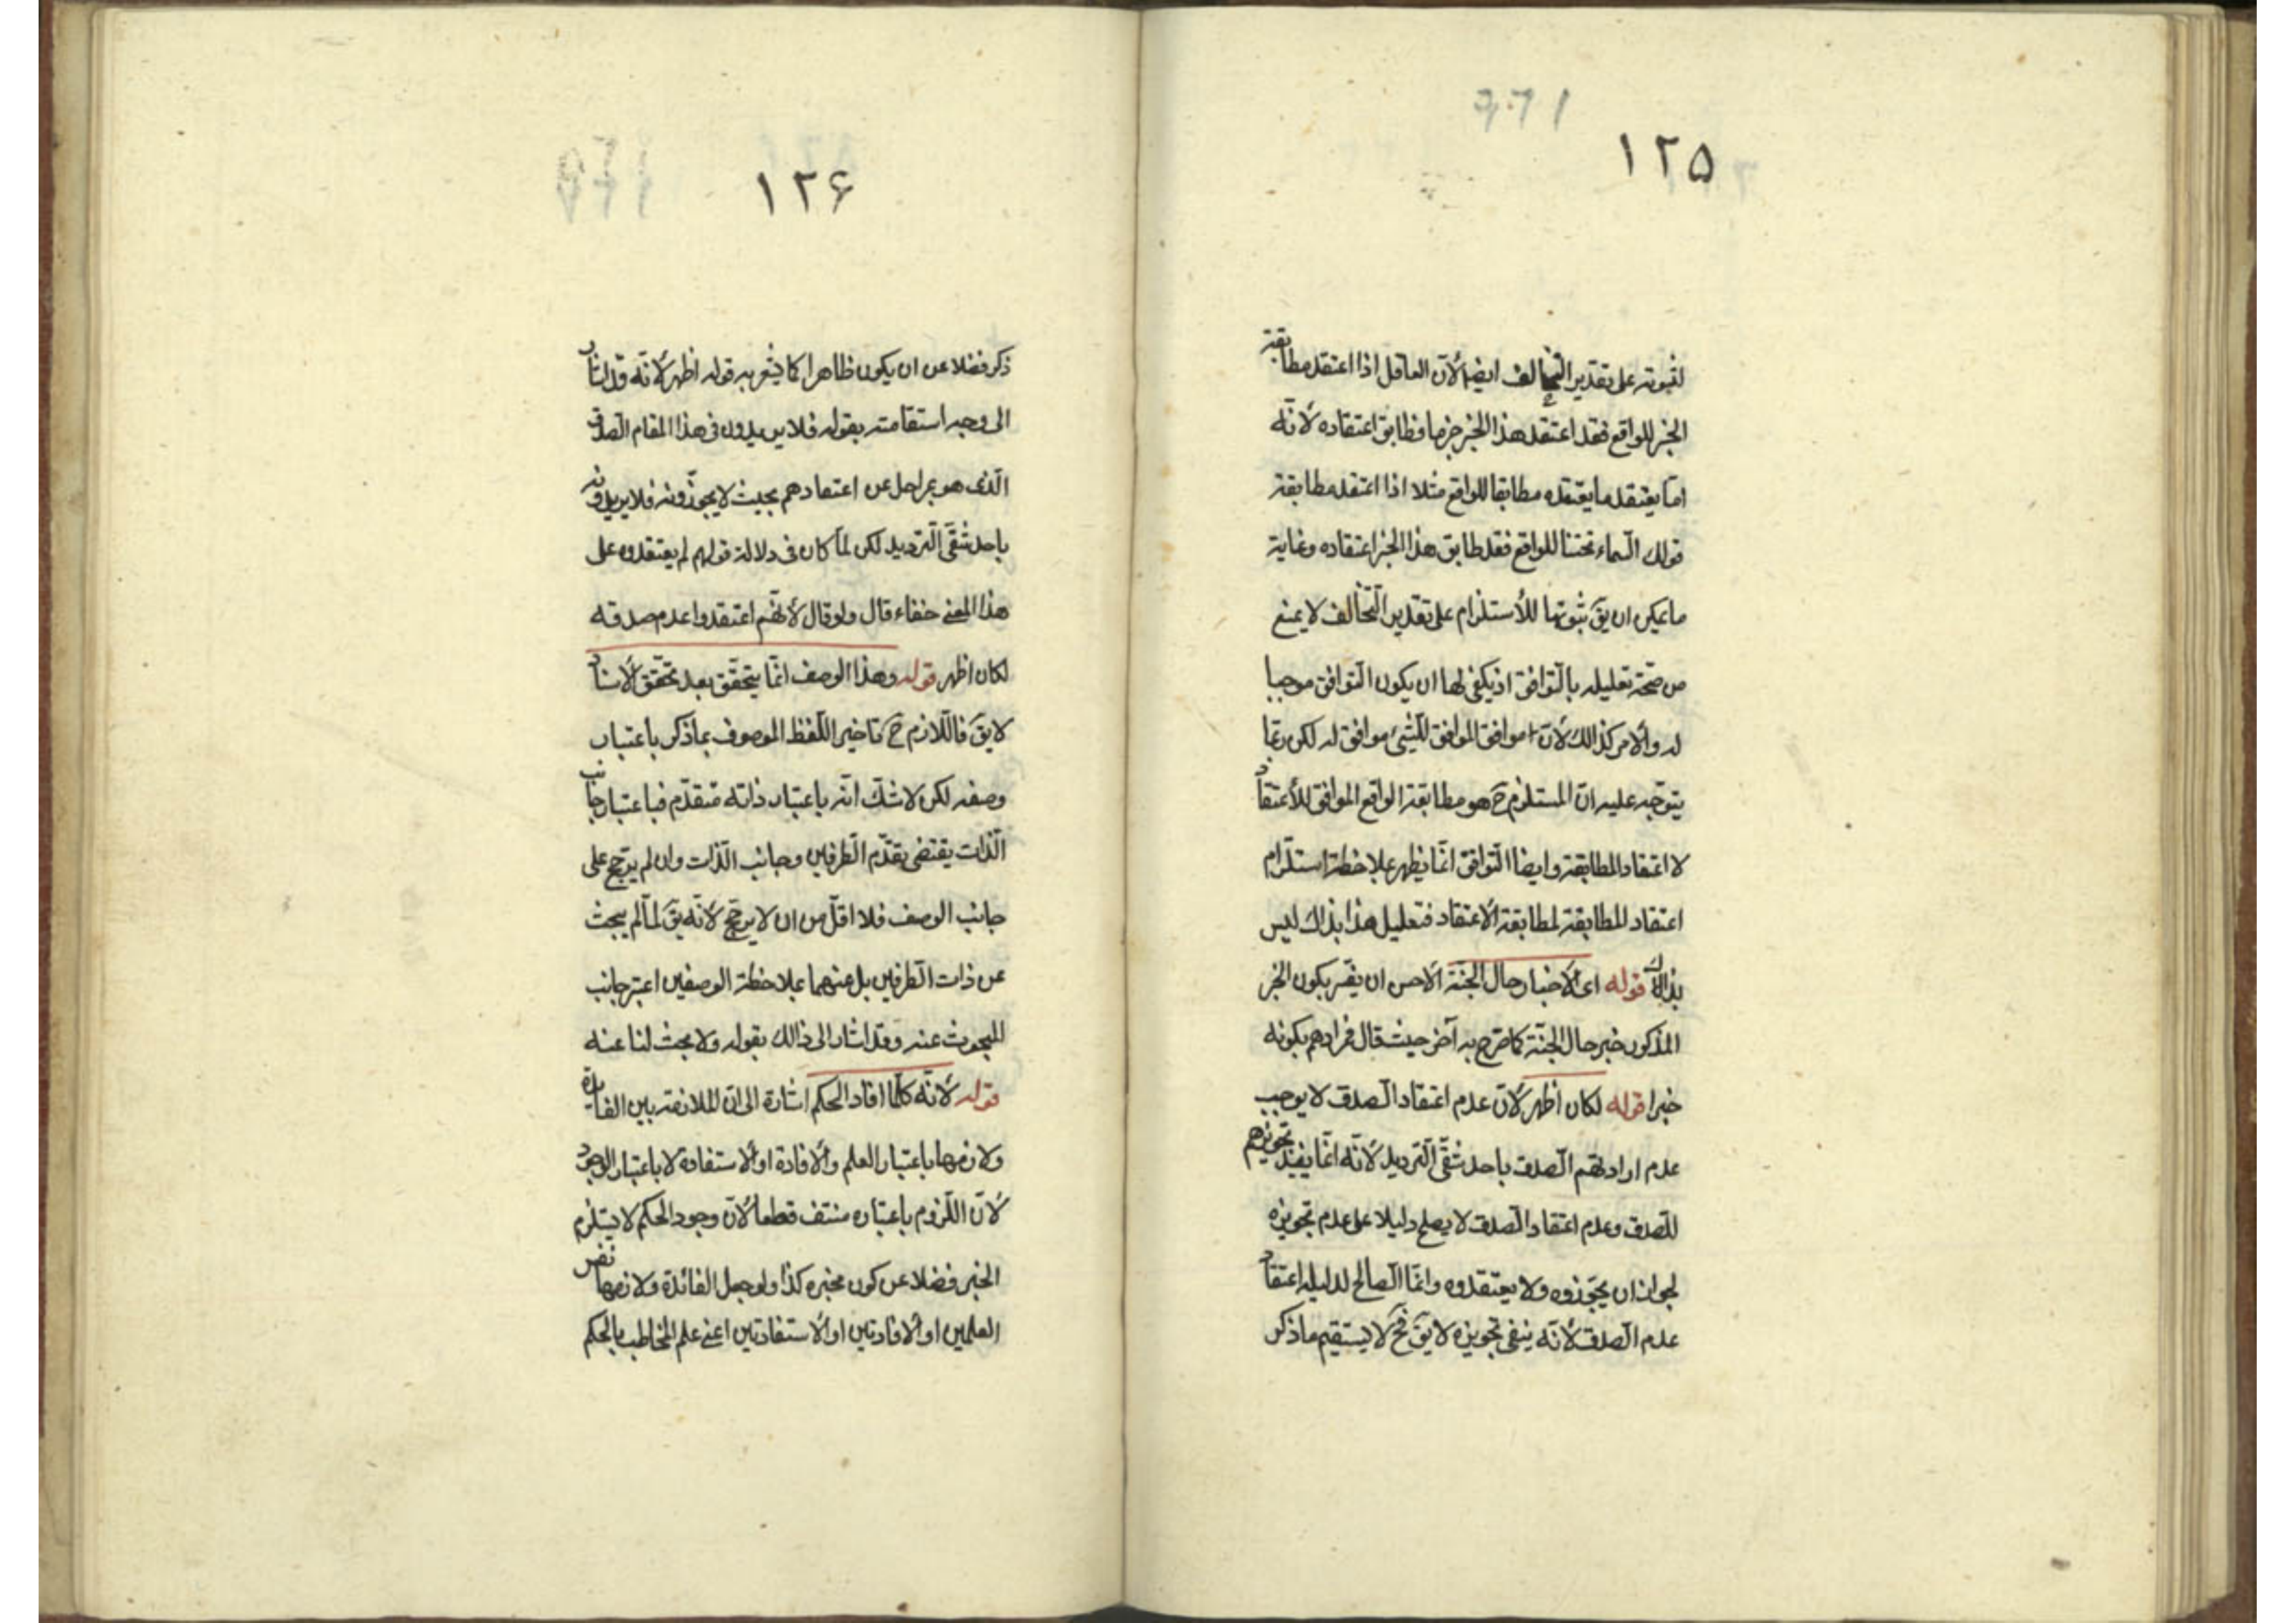 ١٢٥
لثبوته على تقدير التخالف ايضا لأنّ العاقل اذا اعتقد مطابقة
الخبر للواقع فقد اعتقد هذا الخبر جزما فطابق اعتقاده لأنّه
امّا يعتقد ما يعتقده مطابقا للواقع مثلا اذا اعتقد مطابقة
قولك السّماء تحتنا للواقع فقد طابق هذا الخبر اعتقاده وغاية
ما يمكن ان يقَ ثبوتها للأستلزام على تقدير التّخالف لا يمنع
من صحّة تعليله بالتّوافق اذ يكفى لها ان يكون التّوافق موجبا
له والأمر كذالك لأنّ موافق الموافق للشّيئ موافق له لكن ربّما
يتوجّه عليه انّ المستلزم حَ هو مطابقة الواقع الموافق للأعتقاد
لا اعتقاد المطابقة وايضا التّوافق انّما يظهر بملاحظة استلزام
اعتقاد المطابقة لمطابقة الاعتقاد فتعليل هذا بذاك ليس
بذاك قوله اى الأخبار حال الجنّة الأحسن ان يفسّر بكون الخبر
المذكور خبر حال الجنّة كما صرّح به آخر حيث قال فمرادهم بكونه
خبرا قوله لكان اظهر لأنّ عدم اعتقاد الصّدق لا يوجب
عدم ارادتهم الصّدق باحد شقّى التّرديد لأنّه انّما يفيد تجويزهم
للصّدق وعدم اعتقاد الصّدق لا يصلح دليلا على عدم تجويزه
لجواز ان يجوّزوه ولا يعتقدوه وانّما الصّالح لدليله اعتقاد
عدم الصّدق لأنّه ينفى تجويزه لا يقَ فحَ لا يستقيم ما ذكر
١٢۶
ذكر فضلا عن ان يكون ظاهرا كما يشعر به قوله اظهر لأنّه قد اشار
الى وجه استقامته بقوله فلا يريدون فى هذا المقام الصّدق
الّذى هو بمراحل عن اعتقادهم بحيث لا يجوّزونه فلا يريدونه
باحد شقّى التّرديد لكن لمّا كان فى دلالة قولهم لم يعتقدوه على
هذا المعنى خفاء قال ولو قال لأنّهم اعتقدوا عدم صدقه
لكان اظهر قوله وهذا الوصف انّما يتحقّق بعد تحقّق الأسناد
لا يقَ فاللّازم حَ تاخير اللّفظ الموصوف بما ذكر باعتبار
وصفه لكن لا شكّ انّه باعتبار ذاته متقدّم فباعتبار جانب
الذّات يقتضى تقدّم الطّرفين وجانب الذّات وان لم يرجّح على
جانب الوصف فلا اقلّ من ان لا يرجّح لأنّه يقَ لمّا لم يبحث
عن ذات الطّرفين بل عنهما بملاحظة الوصفين اعتبر جانب
المبحوث عنه وقد اشار الى ذالك بقوله ولا بحث لنا عنه
قوله لأنّه كلّما افاد الحكم اشارة الى انّ الملازمة بين الفايدة
ولازمها باعتبار العلم والأفادة او الأستفادة لا باعتبار الوجود
لأنّ اللّزوم باعتباره منتف قطعا لأنّ وجود الحكم لا يستلزم
الخبر فضلا عن كون مخبره كذا ولو جعل الفائدة ولازمها نفس
العلمين او الأفادتين او الأستفادتين اعنى علم المخاطب بالحكم